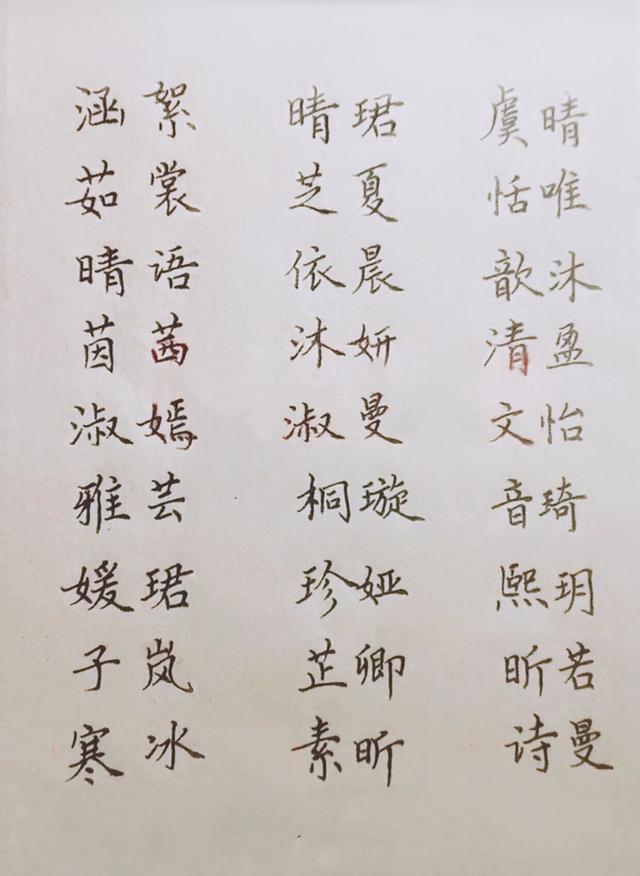 涵絮 晴珺 虞晴
茹裳 芝夏 恬唯
晴语 依晨 歆沐
茵茜 沐妍 清盈
淑嫣 淑曼 文怡
雅芸 桐璇 音琦
媛珺 珍娅 熙玥
子岚 芷卿 昕若
寒冰 素昕 诗曼